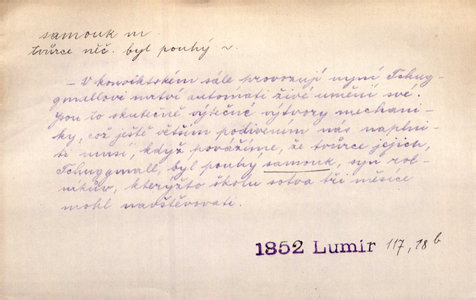 samouk m
tvůrce něč. byl pouhý ~.
– V konviktském sále provozují nyní Tschugg-
gmallovi mrtví automati živé umění své.
Jsou to skutečně výtečné výtvory mechani-
ky, což ještě větším podivením nás naplni-
ti musí, když považíme, že tvůrce jejich,
Tschuggmall, byl pouhý samouk, syn rol-
níkův, kterýžto školu sotva tři měsíce
mohl navštěvovati.
1852 Lumír 117, 18 b